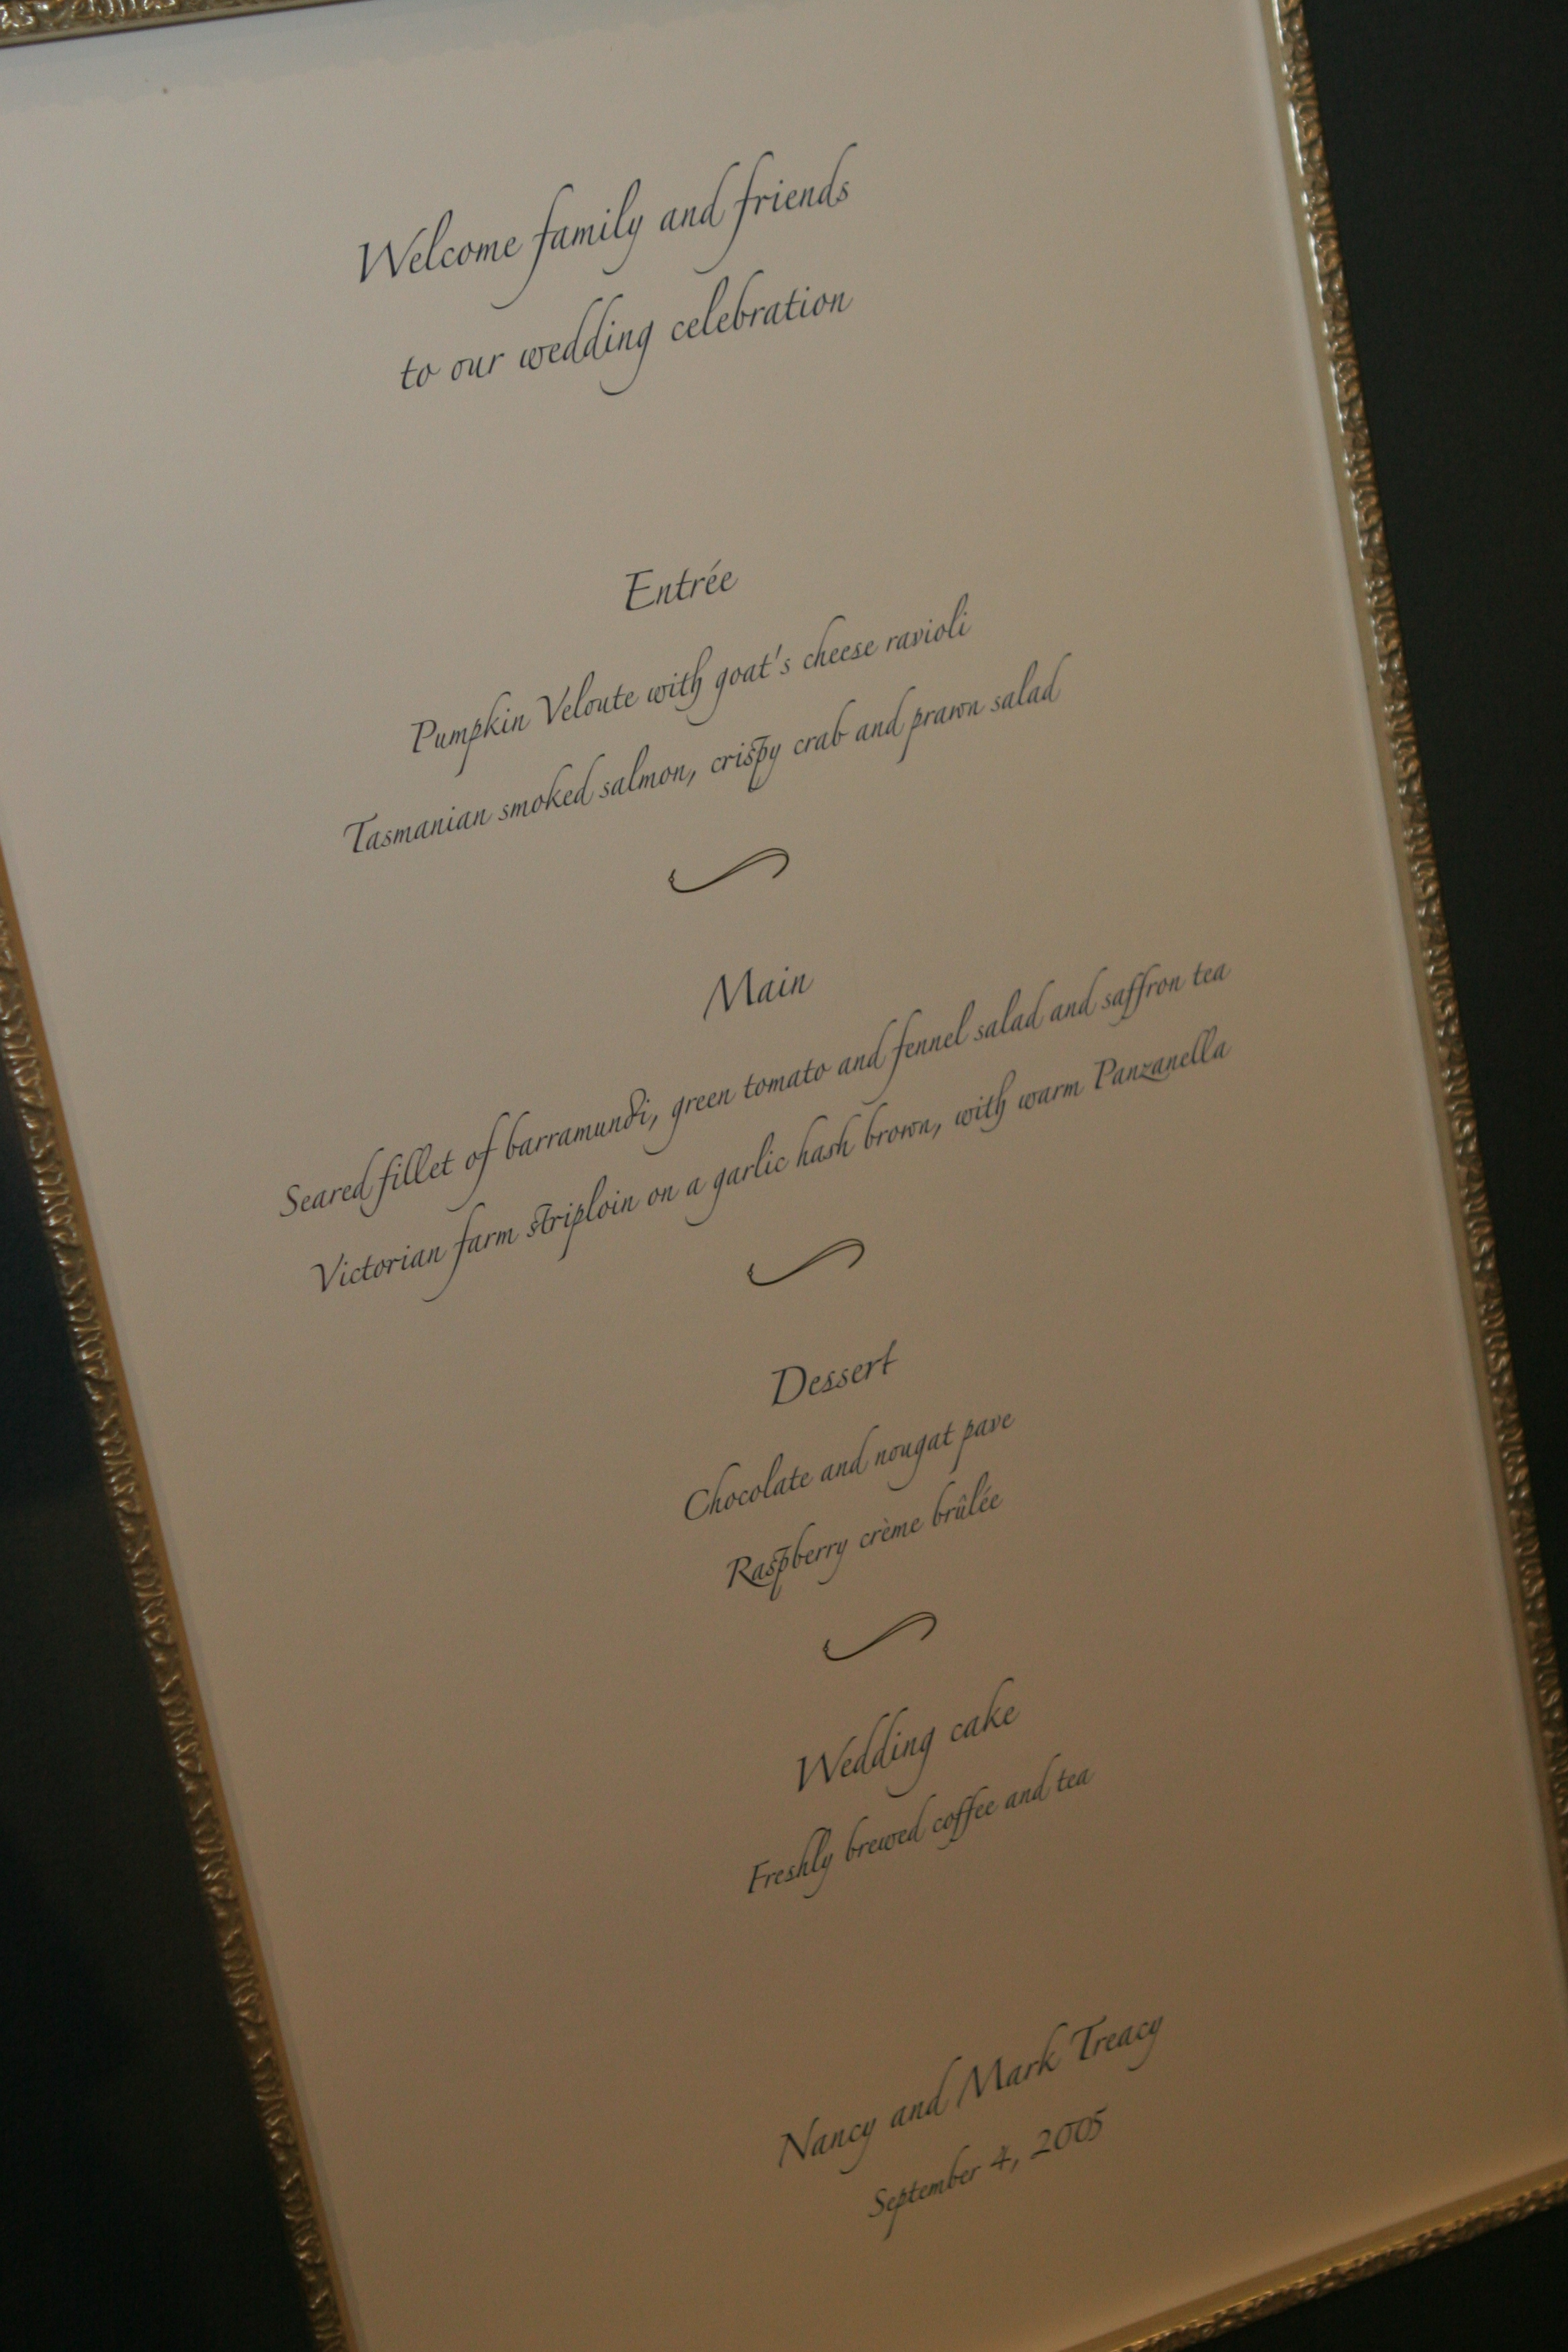 Welcome family and friends
to our wedding celebration
Entrée
Pumpkin Veloute with goat's cheese ravioli
Tasmanian smoked salmon, crispy crab and prawn salad
Main
Seared fillet of barramundi, green tomato and fennel salad and saffron tea
Victorian farm striploin on a garlic hash brown, with warm Panzanella
Dessert
Chocolate and nougat pave
Raspberry crème brûlée
Wedding cake
Freshly brewed coffee and tea
Nancy and Mark Treacy
September 4, 2005